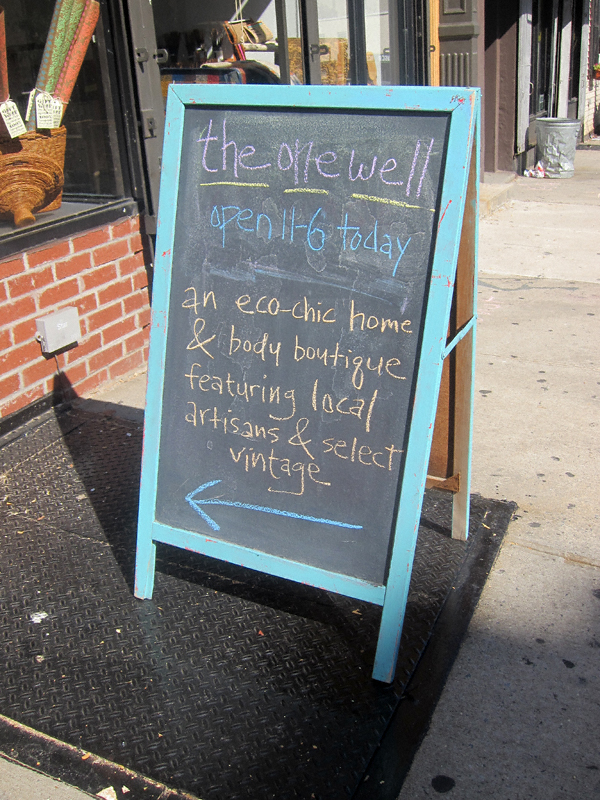 the one well
open 11-6 today
an eco-chic home
& body boutique
featuring local
artisans & select
vintage